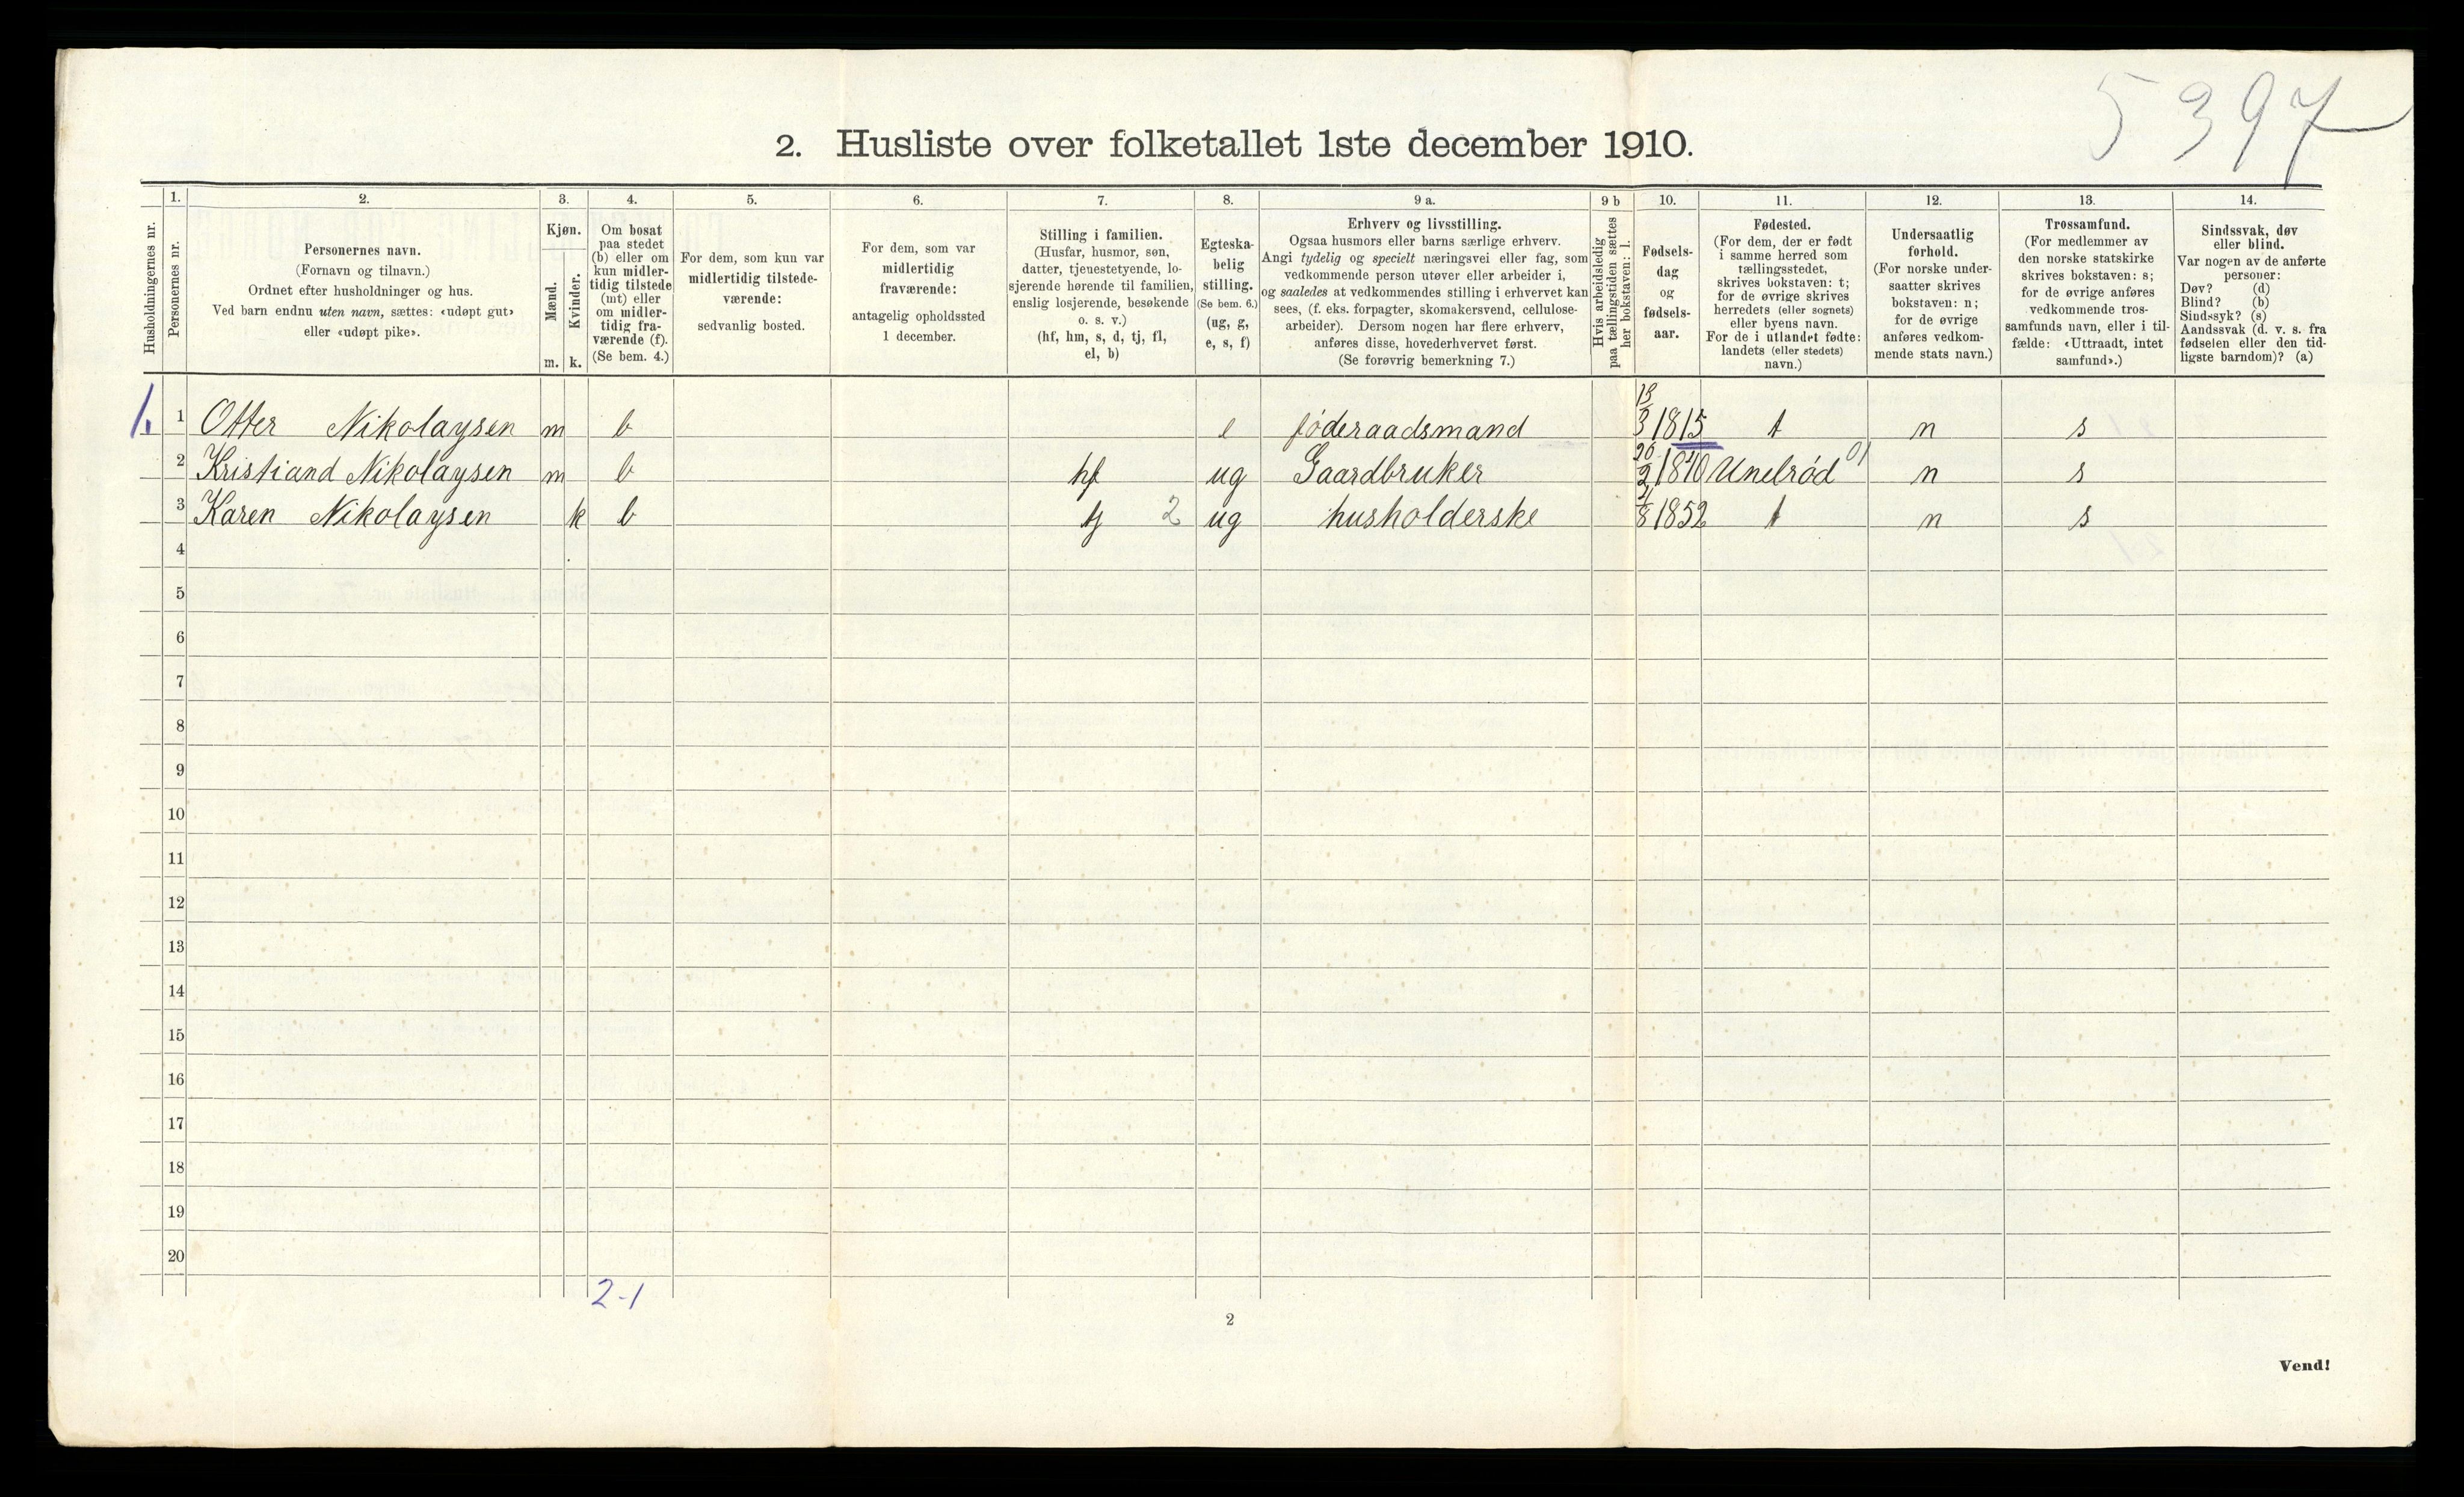 5397
2. Husliste over folketallet 1ste december 1910.
1. 2. 3. 4. 5. 6. 7. 8. 9 a. 9 b 10. 11. 12. 13. 14.
Husholdningernes nr.
Personernes nr.
Personernes navn.
(Fornavn og tilnavn.)
Ordnet efter husholdninger og hus.
Ved barn endnu uten navn, sættes: «udøpt gut»
eller «udøpt pike».
Kjøn.
Mænd.
m.
Kvinder.
k.
Om bosat
paa stedet
(b) eller om
kun midler-
tidig tilstede
(mt) eller
om midler-
tidig fra-
værende (f).
(Se bem. 4.)
For dem, som kun var
midlertidig tilstede-
værende:
sedvanlig bosted.
For dem, som var
midlertidig
fraværende:
antagelig opholdssted
1 december.
Stilling i familien.
(Husfar, husmor, søn,
datter, tjenestetyende, lo-
sjerende hørende til familien,
enslig losjerende, besøkende
o. s. v.)
(hf, hm, s, d, tj, fl,
el, b)
Egteska-
belig
stilling.
(Se bem. 6.)
(ug, g,
e, s, f)
Erhverv og livsstilling.
Ogsaa husmors eller barns særlige erhverv.
Angi tydelig og specielt næringsvei eller fag, som
vedkommende person utøver eller arbeider i,
og saaledes at vedkommendes stilling i erhvervet kan
sees, (f. eks. forpagter, skomakersvend, cellulose-
arbeider). Dersom nogen har flere erhverv,
anføres disse, hovederhvervet først.
(Se forøvrig bemerkning 7.)
Hvis arbeidsledig
paa tællingstiden sættes
her bokstaven: l.
Fødsels-
dag
og
fødsels-
aar.
Fødested.
(For dem, der er født
i samme herred som
tællingsstedet,
skrives bokstaven: t;
for de øvrige skrives
herredets (eller sognets)
eller byens navn.
For de i utlandet fødte:
landets (eller stedets)
navn.)
Undersaatlig
forhold.
(For norske under-
saatter skrives
bokstaven: n;
for de øvrige
anføres vedkom-
mende stats navn.)
Trossamfund.
(For medlemmer av
den norske statskirke
skrives bokstaven: s;
for de øvrige anføres
vedkommende tros-
samfunds navn, eller i til-
fælde: «Uttraadt, intet
samfund».)
Sindssvak, døv
eller blind.
Var nogen av de anførte
personer:
Døv? (d)
Blind? (b)
Sindssyk? (s)
Aandssvak (d. v. s. fra
fødselen eller den tid-
ligste barndom)? (a)
1. 1 Otter Nikolaysen m b e føderaadsmand 13/3 1815 t n s
2 Kristiand Nikolaysen m b hf ug Gaardbruker 1840 01 n s
3 Karen Nikolaysen k b tj 2 ug husholderske 1852 t n s
4
5
6
7
8
9
10
11
12
13
14
15
16
17
18
19
20
2-1
2
Vend!